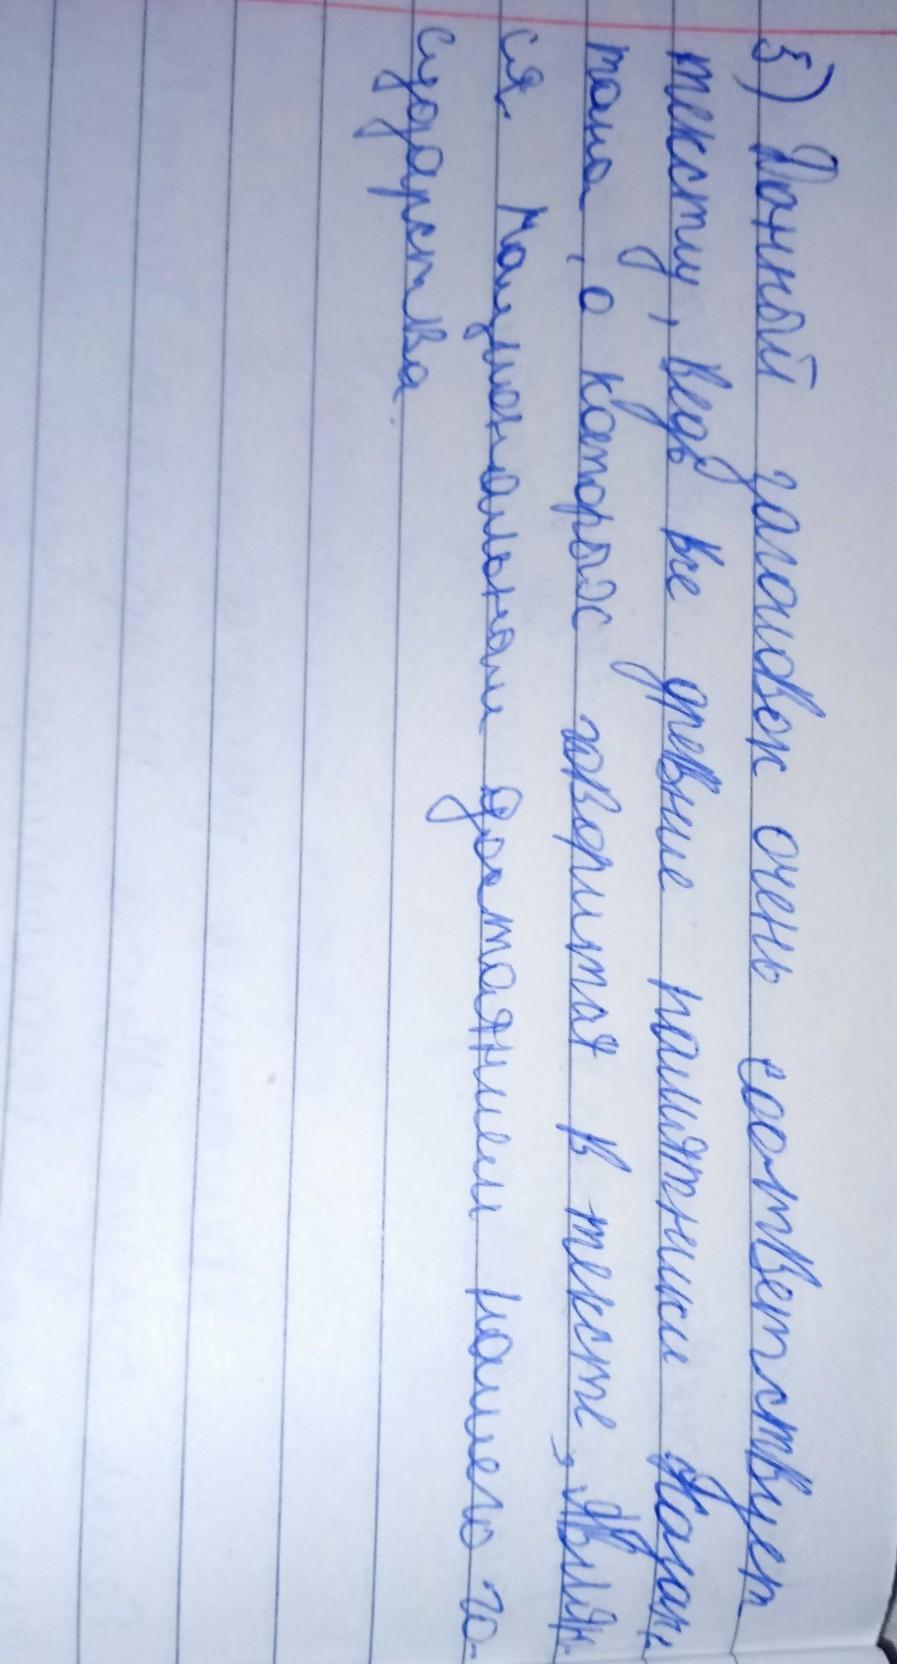 5) Данный заголовок очень соответствует
тексту, ведь все древние памятники Казахс-
тана, о которых говорится в тексте, являют-
ся национальном достоянием нашего го-
сударства.